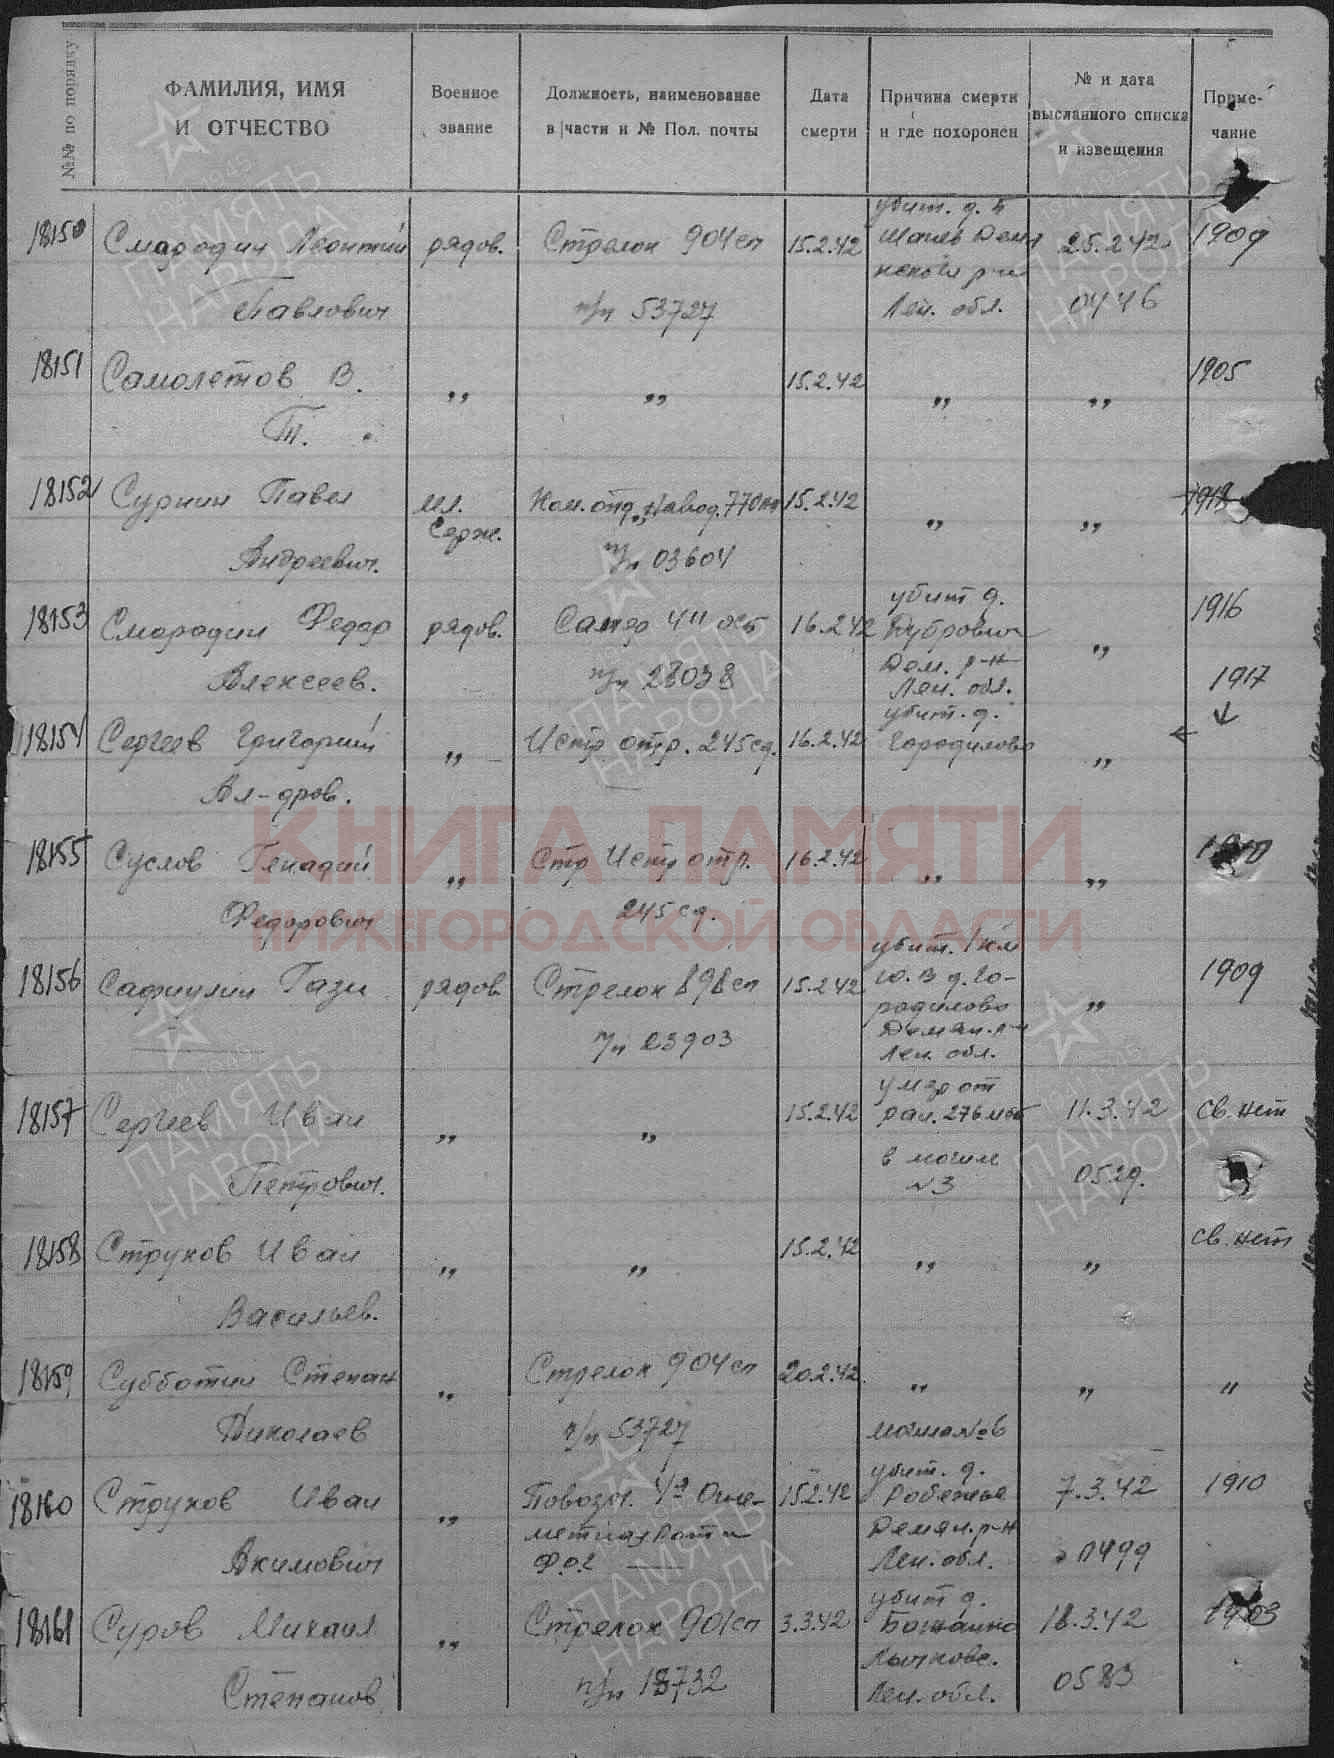 №№ по порядку
ФАМИЛИЯ, ИМЯ
И ОТЧЕСТВО
Военное
звание
Должность, наименование
в части и № Пол. почты
Дата
смерти
Причина смерти
и где похоронен
№ и дата
высланного списка
и извещения
Приме-
чание
убит. д. Б
18150 Смародин Леонтий рядов. Стрелок 904 сп 15.2.42 25.2.42 1909
Павлович п/п 53727 Лен. обл. 0446
18151 Самолетов В. „ „ 15.2.42 „ „ 1905
Т.
18152 Суркин Павел мл. Ком. отд. 15.2.42 „ „ 1918
Серж.
Андреевич. п/п 03604
убит д.
18153 Смородин Федор рядов. Сапер 411 16.2.42 „ 1916
Дем. р-н
Алексеев. п/п 28038 Лен. обл. 1917
убит. д.
18154 Сергеев Григорий „ Истр. отр. 245 сд. 16.2.42 Городилово „
Ал-дров.
18155 Суслов Генадий „ Стр Истр отр. 16.2.42 „ „ 1910
Федорович 245 сд.
убит. 1 км
18156 Сафиулин Гази рядов Стрелок 898 сп 15.2.42 ю. В д. Го- „ 1909
родилово
п/п 23903 Демян. р-н
Лен. обл.
умер от
18157 Сергеев Иван „ „ 15.2.42 ран. 276 мсб 11.3.42 св. нет
в могил
Петрович. №3 0529.
18158 Струков Иван „ „ 15.2.42 „ „ св. нет
Васильев.
18159 Субботин Степан „ Стрелок 904 сп 20.2.42 „ „ „
Николаев п/п 53727 могила №6
убит. д.
18160 Струков Иван „ Повозч. 15.2.42 7.3.42 1910
Демян. р-н
Акимович Лен. обл. 0499
убит д.
18161 Суров Михаил „ Стрелок 901 сп 3.3.42 18.3.42 1903
Лычковс.
Степанов п/п 18732 Лен. обл. 0583
КНИГА ПАМЯТИ
НИЖЕГОРОДСКОЙ ОБЛАСТИ
1941-1945
ПАМЯТЬ
НАРОДА
1941-1945
ПАМЯТЬ
НАРОДА
ПАМЯТЬ
НАРОДА
1941-1945
ПАМЯТЬ
НАРОДА
1941-1945
ПАМЯТЬ
НАРОДА
ПАМЯТЬ
НАРОДА